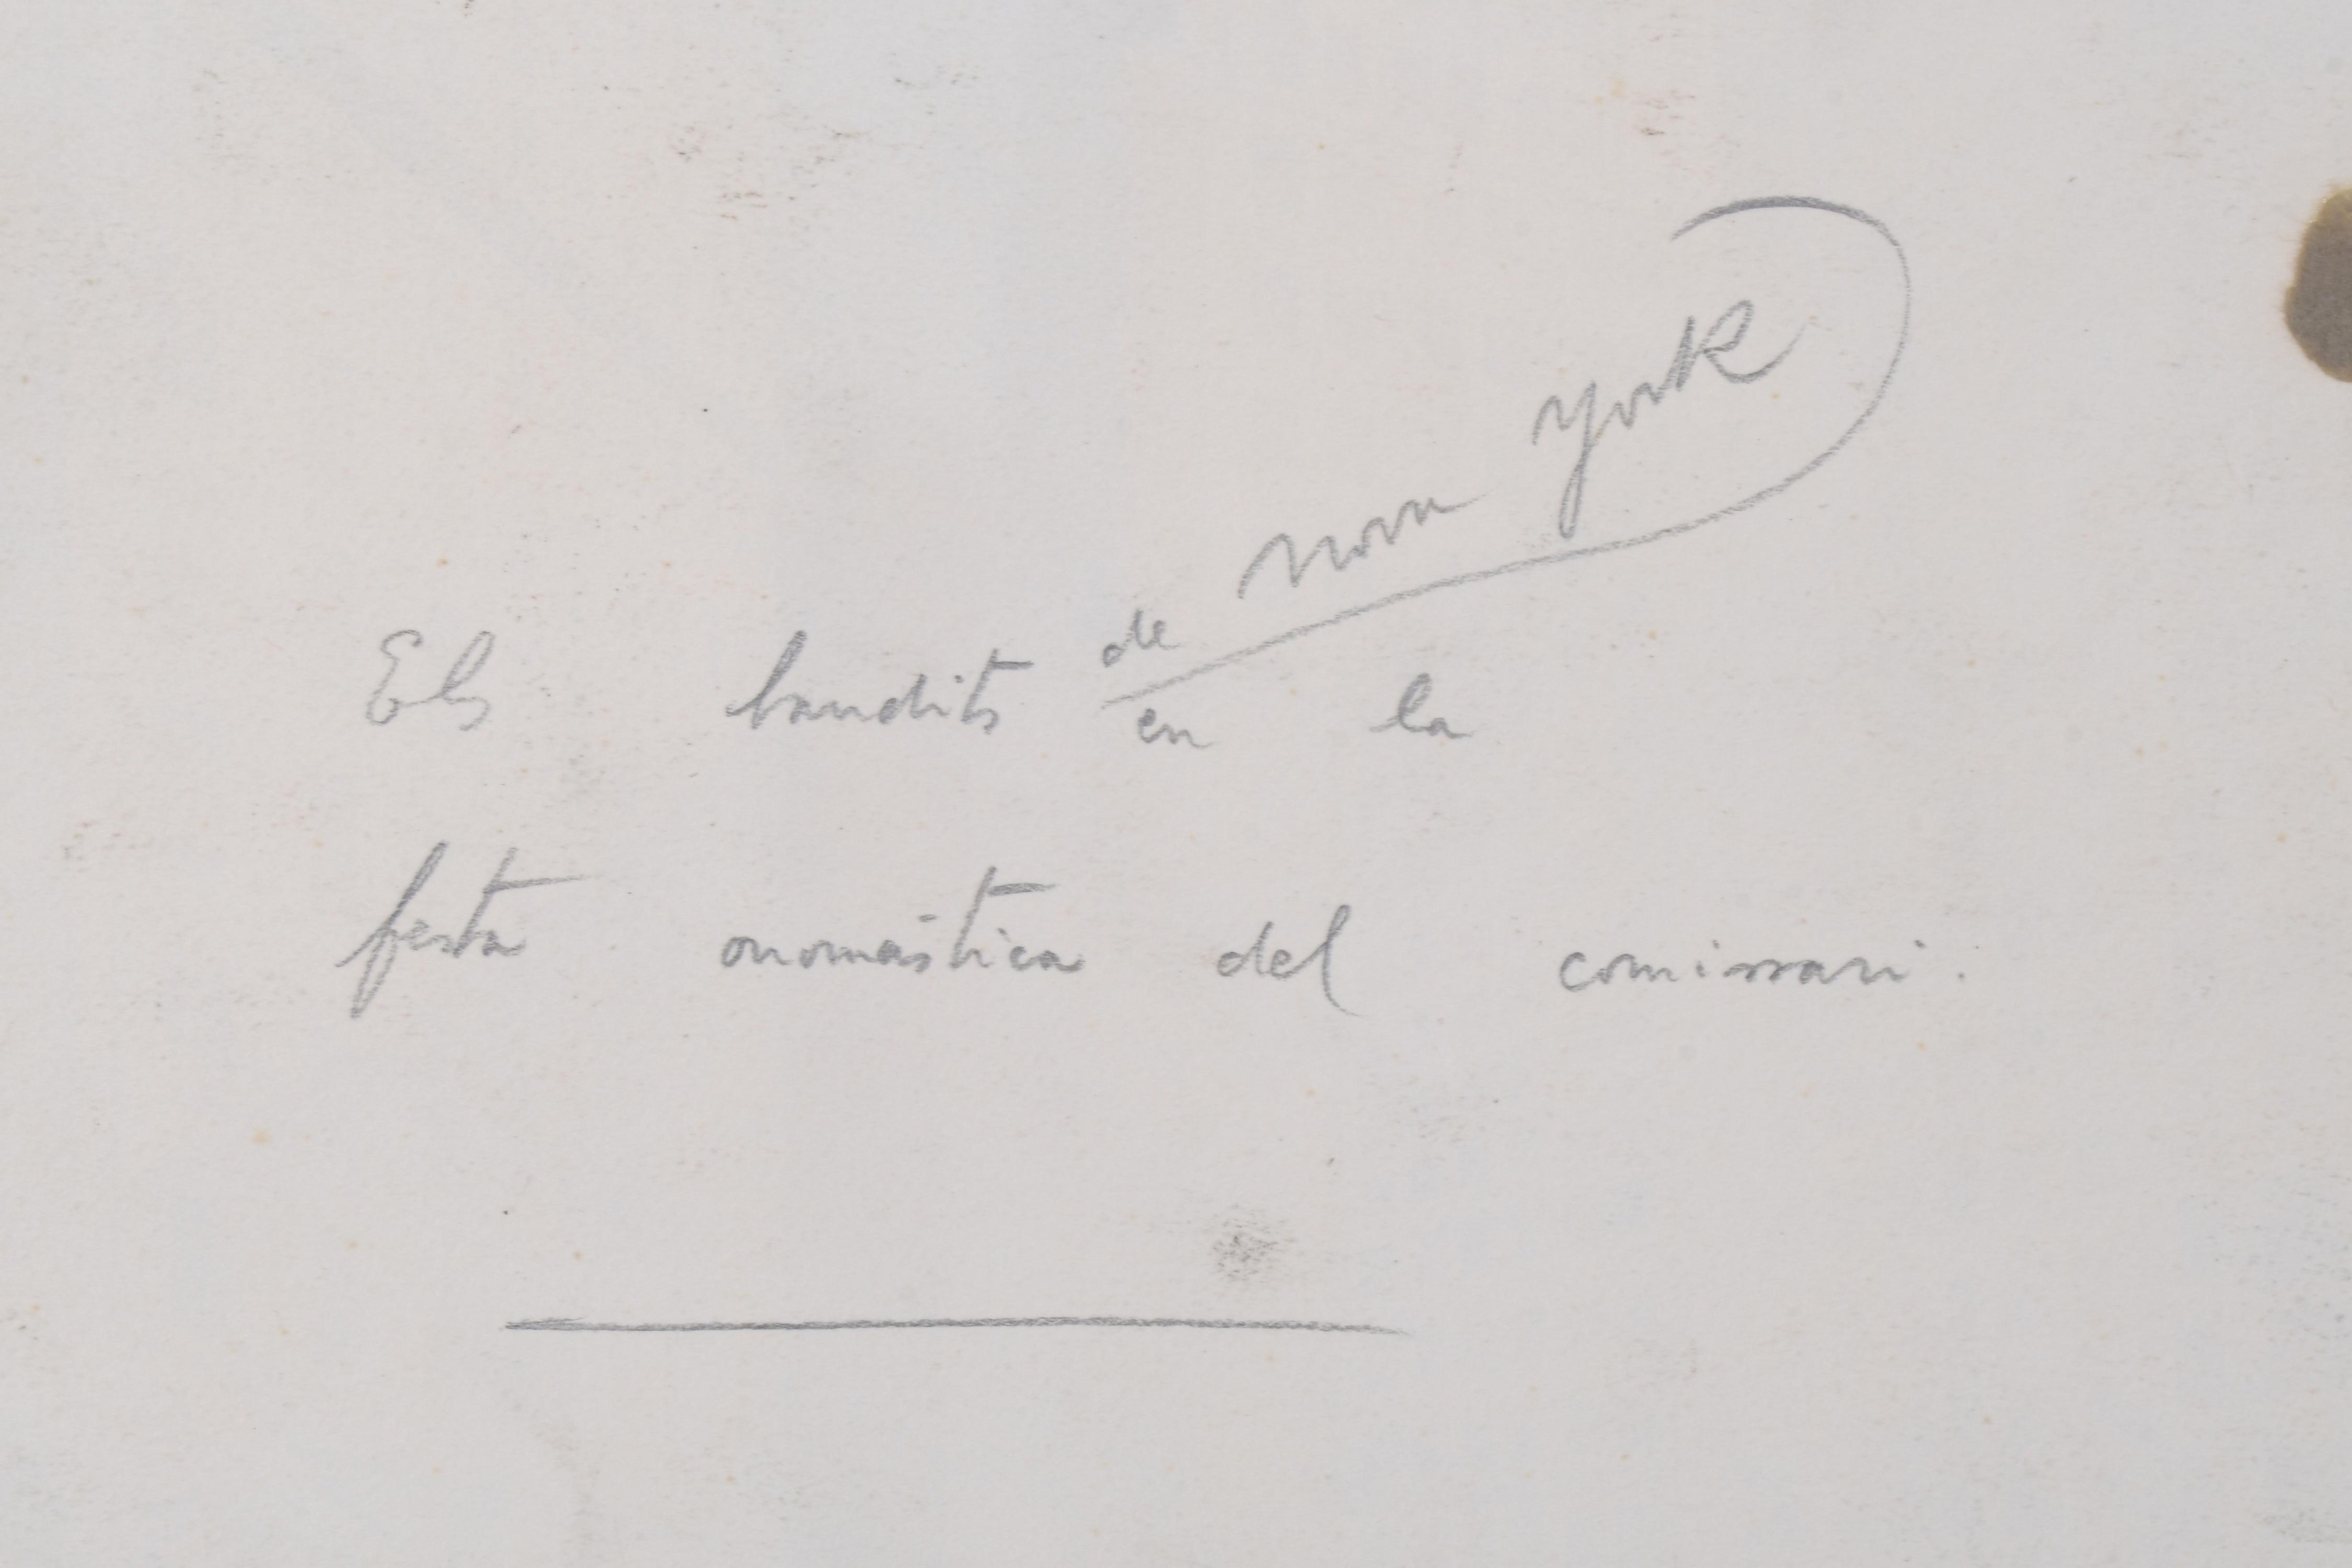 de nova york
Els bandits en la
festa onomástica del comissari.